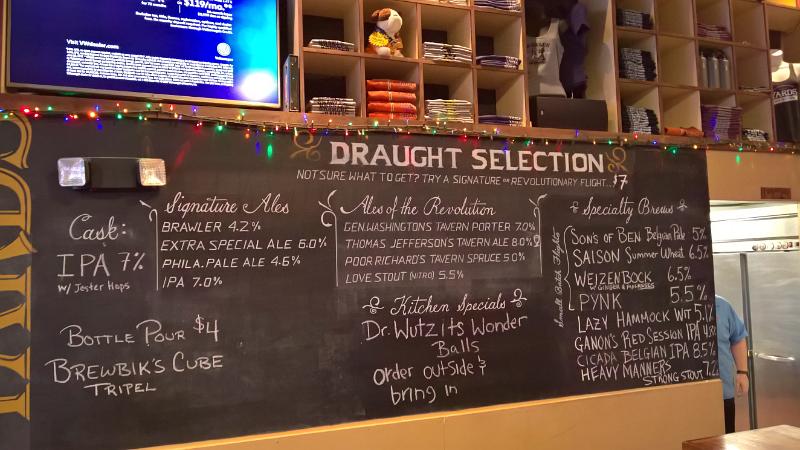 $119/mo.
Visit VWdealer.com
Volkswagen
DRAUGHT SELECTION
NOT SURE WHAT TO GET? TRY A SIGNATURE OR REVOLUTIONARY FLIGHT... $7
Cask:
IPA 7%
W/ Jester Hops
Bottle Pour $4
Brewbik's Cube
Tripel
Signature Ales
BRAWLER 4.2%
EXTRA SPECIAL ALE 6.0%
PHILA. PALE ALE 4.6%
IPA 7.0%
Ales of the Revolution
GEN. WASHINGTONS TAVERN PORTER 7.0%
THOMAS JEFFERSON'S TAVERN ALE 8.0%
POOR RICHARD'S TAVERN SPRUCE 5.0%
LOVE STOUT (NITRO) 5.5%
Kitchen Specials
Dr. Wutzits Wonder
Balls
Order outside &
bring in
Specialty Brews
Small Batch Flights
SON'S OF BEN Belgian Pale 5%
SAISON Summer Wheat 6.5%
WEIZENBOCK 6.5%
W/ GINGER & MOLASSES
PYNK 5.5%
LAZY HAMMOCK WIT 5.1%
GANON'S RED SESSION IPA
CICADA BELGIAN IPA 8.5%
HEAVY MANNERS
STRONG STOUT